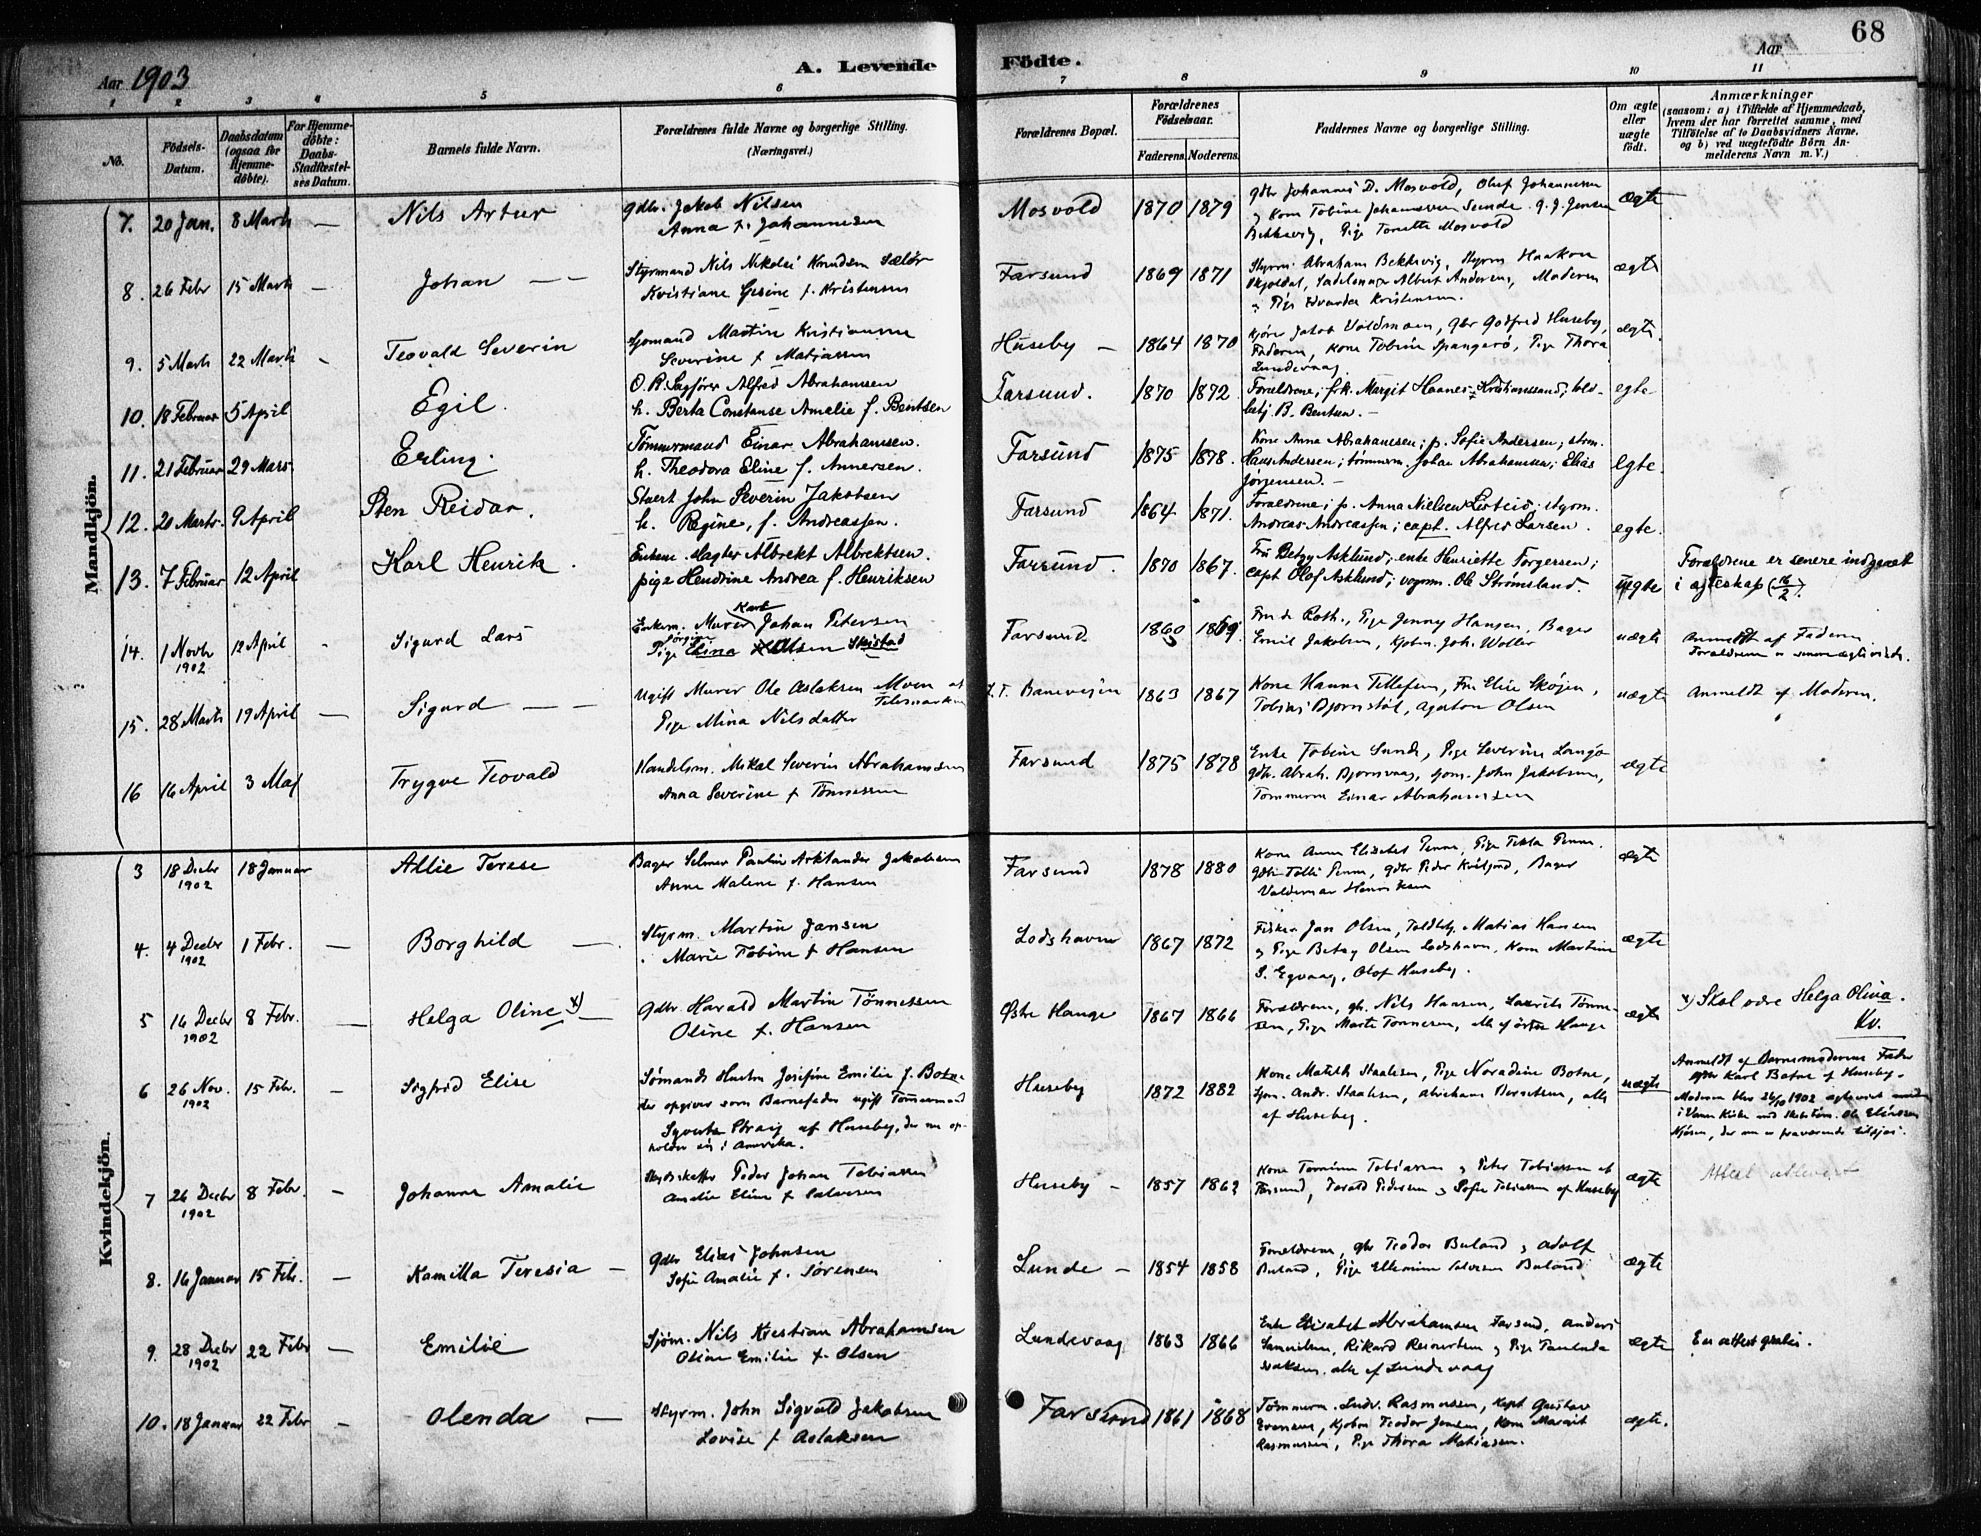 68
Aar 1903
A. Levende Födte.
Aar
1 2 3 4 5 6 7 8 9 10 11
No.
Födsels-Datum.
Daabsdatum (ogsaa for Hjemme-döbte).
For Hjemme-döbte: Daabs-Stadfæstel-ses Datum.
Barnets fulde Navn.
Forældrenes fulde Navne og borgerlige Stilling.
(Næringsvei.)
Forældrenes Bopæl.
Forældrenes Födselsaar.
Faderens. Moderens.
Faddernes Navne og borgerlige Stilling.
Om ægte eller uægte födt.
Anmærkninger
(saasom: a) i Tilfælde af Hjemmedaab,
hvem der har forrettet samme, med
Tilföielse af to Daabsvidners Navne,
og b) ved uægtefödte Börn An-
melderens Navn m. V.)
Mandkjön.
7. 20 Jan. 8 Marts — Nils Artur
Gdbr. Jakob Nilsen
Anna f. Johannesen
Mosvold 1870 1879
Gdbr Johannes D. Mosvold, Oluf Johannesen
og Kone Tobine Johannesen Sunde. G. J. Jensen
Bekkevig, Pige Tonette Mosvold
Ægte
8. 26 Febr 15 Marts — Johan — —
Styrmand Nils Nikolai Knudsen Sælör
Kristiane Gesine f. Kristensen
Farsund 1869 1871
Styrm. Abraham Bekkevig, Styrm Haakon
Skjoldal, Sadelmager Albert Andersen, Moderen
og Pige Edvarda Kristensen.
ægte
9. 5 Marts 22 Marts - Teovald Severin
Sjömand Martin Kristiansen
Severine f Matiassen
Huseby — 1864 1870
Jakob Voldmoen, Gbr Godfred Huseby,
Faderen, Kone Tobine Spangerö, Pige Thora
Lundevaag.
ægte.
10. 18 Februar 5 April Egil.
O. R. Sagförer Alfred Abrahamsen
h. Berta Constanse Amelie f. Bentsen
Farsund. 1870 1872
Forældrene; frk. Margit Haanes, Kristianssand; told-
betj. B. Bentsen. —
egte
11. 21 Februar 29 Mars. Erling.
Tömmermand Einar Abrahamsen.
h. Theodora Eline f. Annersen.
Farsund 1875 1878.
Kone Anna Abrahamsen; p. Sofie Andersen; strm.
Hans Andersen; tömmerm. Johan Abrahamsen; Elias
Jörgensen. —
egte.
12. 20 Marts. 9 April Sten Reidar.
Stuert John Severin Jakobsen
h. Regine, f. Andreassen.
Farsund 1864 1871.
Forældrene; p. Anna Nielsen; styrm.
Andreas Andreassen; capt. Alfred Larsen.
egte.
13. 7 Februar 12 April Karl Henrik.
Enkem. slagter Albrekt Albrektsen.
pige Hendrine Andrea f. Henriksen
Farsund. 1870 1867.
Fru Betzy Asklund; enke Henriette Torgessen;
capt Olof Asklund; vognm. Ole Strömsland.
uegte
Foraldrene er senere indgaaet
i ægteskap (16/2).
14. 1 Novbr 1902 12 April - Sigurd Lars
Enkem. Murer Karl Johan Petersen
Pige Elina Olsen Skeibrod
Farsund 1860 1869
Fru de Roth., Pige Jenny Hansen, Bager
Emil Jakobsen, Kjobm. Joh. Woller
uægte
Anmeldt af Faderen
Forældrene er senere ægteviede.
15. 28 Marts 19 April — Sigurd — —
Ugift Murer Ole Aslaksen Moen af Telemarken
Pige Mina Nilsdatter
Banevejen 1863 1867
Kone Hanna Tellefsen, Fru Elise Sköjen,
Tobias Bjornstöl, Agaton Olsen
uægte
Anmeldt af Moderen.
16 16 April 3 Maj Trygve Teovald
Handelsm. Mikal Severin Abrahamsen
Anna Severine f Tönnessen
Farsund 1875 1878
Enke Tobine Sunde, Pige Severine
Gdbr. Abrah. Bjornsvaag, Sjom. John Jakobsen,
Tommerm Einar Abrahamsen
ægte
Kvindekjön.
3 18 Decbr 1902 18 Januar Allie Terese
Bager Selmer Paulin Jakobsen
Anne Malene f. Hansen
Farsund 1878 1880
Kone Anne Elisabet Penne, Pige Tekla Penne.
Gdbr Tolli Penne, Gdbr Peder Kviljord, Bager
Valdemar Henriksen
ægte
4. 4 Decbr 1902 1 Febr. — Borghild —
Styrm. Martin Jansen
Marie Tobine f Hansen
Lodshavn 1867 1872
Fisker Jan Olsen, Toldbetj. Matias Hansen
og Pige Betsy Olsen Lodshavn. Kone Martine
S. Egvaag, Olof Huseby.
ægte
5 16 Decbr 1902 8 Febr. — Helga Oline x) —
Gdbr Harald Martin Tönnessen
Oline f. Hansen
Østre Hauge 1867 1866
Forældrene, gb. Nils Hansen, Laurits Tönne-
sen, Pige Marte Tonnesen, alle af östre Hauge
ægte
x) Skal være Helga Olina.
Kv.
6 26 Nov. 1902 15 Febr. — Sigfrid Elise
Sömands Hustru Josefine Emilie f. Botne
der opgiver som Barnefader ugift Tömmermand
Syvert af Huseby, der nu op-
holder sig i Amerika.
Huseby 1872 1882
Kone Matilde Staalesen, Pige Noradine Botne,
Sjom. Andr. Staalesen, Abraham Berntsen, alle
af Huseby.
uægte
Anmeldt af Barnemoderens Fader
gdbr Karl Botne af Huseby.
Moderen blev 26/10 1902 ægteviet
i Vanse Kirke med Ole
der nu er fraværende tilsjøs.
7 26 Decbr 1902 8 Febr. — Johanne Amalie
Peder Johan Tobiassen
Amalie Eline f Salvesen
Huseby — 1857 1862
Kone Tomine Tobiassen og Peter Tobiassen af
Farsund, Torald Pedersen og Sofie Tobiassen af Huseby
ægte
Attest utlevert
8. 16 Januar 15 Feb. — Kamilla Teresia —
Gdbr Elias Johnsen
Sofie Amalie f. Sörensen
Lunde — 1854 1858
Forældrene, gbr Teodor Buland og Adolf
Buland, Pige Ellemine Salvesen Buland
ægte
9. 28 Decbr 1902 22 Febr — Emilie
Sjöm. Nils Kristian Abrahamsen
Oline Emilie f. Olsen
Lundevaag 1863 1866
Enke Elisabet Abrahamsen Farsund, Anders
Samuelsen, Rikard Reinertsen og Pige Paulinda
Isaksen, alle af Lundevaag
ægte
En attest gratis.
10. 18 Januar 22 Febr — Olenda —
Styrm. John Sigvald Jakobsen
Lovise f Aslaksen
Farsund 1861 1868
Tömmerm. Ludv. Rasmussen, Kapt Gustav
Evensen, Kjobm Teodor Jensen, Kone Margit
Rasmussen, Pige Thora Matiasen.
ægte.